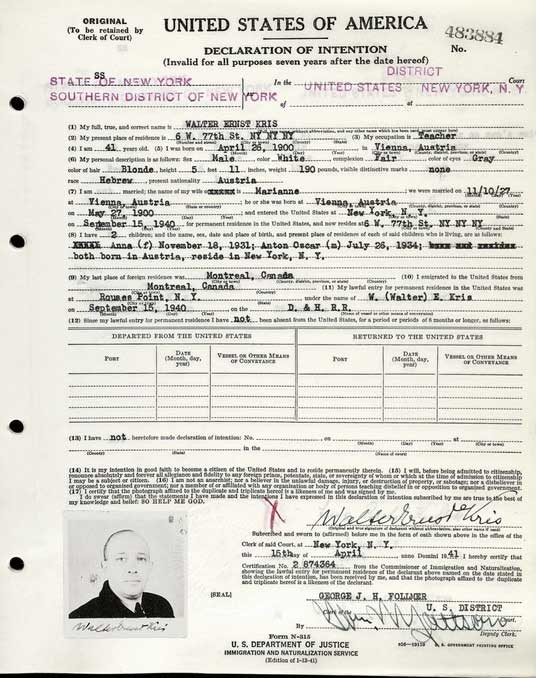 ORIGINAL
(To be retained by
Clerk of Court)
UNITED STATES OF AMERICA
483884
No.
DECLARATION OF INTENTION
(Invalid for all purposes seven years after the date hereof)
SS
STATE OF NEW YORK
SOUTHERN DISTRICT OF NEW YORK
In the
of
DISTRICT
Court
UNITED STATES
NEW YORK, N. Y.
at
(1) My full, true, and correct name is WALTER ERNST KRIS
(2) My present place of residence is 6 W. 77th St. NY NY NY (3) My occupation is Teacher
(4) I am 41 years old. (5) I was born on April 26, 1900 in Vienna, Austria
(6) My personal description is as follows: Sex Male, color White, complexion Fair, color of eyes Gray
color of hair Blonde, height 5 feet 11 inches, weight 190 pounds, visible distinctive marks none
race Hebrew, present nationality Austria
(7) I am married; the name of my wife is Marianne; we were married on 11/10/27
at Vienna, Austria; he or she was born at Vienna, Austria
on May 27, 1900; and entered the United States at New York, N. Y.
on September 15, 1940 for permanent residence in the United States, and now resides at 6 W. 77th St. NY NY NY
(8) I have 2 children; and the name, sex, date and place of birth, and present place of residence of each of said children who is living, are as follows:
Anna (f) November 18, 1931; Anton Oscar (m) July 26, 1934;
both born in Austria, reside in New York, N. Y.
(9) My last place of foreign residence was Montreal, Canada (10) I emigrated to the United States from
Montreal, Canada (11) My lawful entry for permanent residence in the United States was
at Rouses Point, N. Y. under the name of W. (Walter) E. Kris
on September 15, 1940 on the D. & H. R.R.
(12) Since my lawful entry for permanent residence I have not been absent from the United States, for a period or periods of 6 months or longer, as follows:
DEPARTED FROM THE UNITED STATES
RETURNED TO THE UNITED STATES
PORT
DATE
(Month, day,
year)
VESSEL OR OTHER MEANS
OF CONVEYANCE
PORT
DATE
(Month, day,
year)
VESSEL OR OTHER MEANS
OF CONVEYANCE
(13) I have not heretofore made declaration of intention: No. on at
in the
(14) It is my intention in good faith to become a citizen of the United States and to reside permanently therein. (15) I will, before being admitted to citizenship,
renounce absolutely and forever all allegiance and fidelity to any foreign prince, potentate, state, or sovereignty of whom or which at the time of admission to citizenship
I may be a subject or citizen. (16) I am not an anarchist; nor a believer in the unlawful damage, injury, or destruction of property, or sabotage; nor a disbeliever in
or opposed to organized government; nor a member of or affiliated with any organization or body of persons teaching disbelief in or opposition to organized government.
(17) I certify that the photograph affixed to the duplicate and triplicate hereof is a likeness of me and was signed by me.
I do swear (affirm) that the statements I have made and the intentions I have expressed in this declaration of intention subscribed by me are true to the best of
my knowledge and belief: SO HELP ME GOD.
X
Walter Ernst Kris
Subscribed and sworn to (affirmed) before me in the form of oath shown above in the office of the
Clerk of said Court, at New York, N. Y.
this 15th day of April anno Domini 1941 I hereby certify that
Certification No. 2 874364 from the Commissioner of Immigration and Naturalization,
showing the lawful entry for permanent residence of the declarant above named on the date stated in
this declaration of intention, has been received by me, and that the photograph affixed to the duplicate
and triplicate hereof is a likeness of the declarant.
(SEAL)
GEORGE J. H. FOLLMER
U. S. DISTRICT
Clerk of the
Court.
By
Deputy Clerk.
Walter Ernst Kris
Form N-315
U. S. DEPARTMENT OF JUSTICE
IMMIGRATION AND NATURALIZATION SERVICE
(Edition of 1-13-41)
U. S. GOVERNMENT PRINTING OFFICE